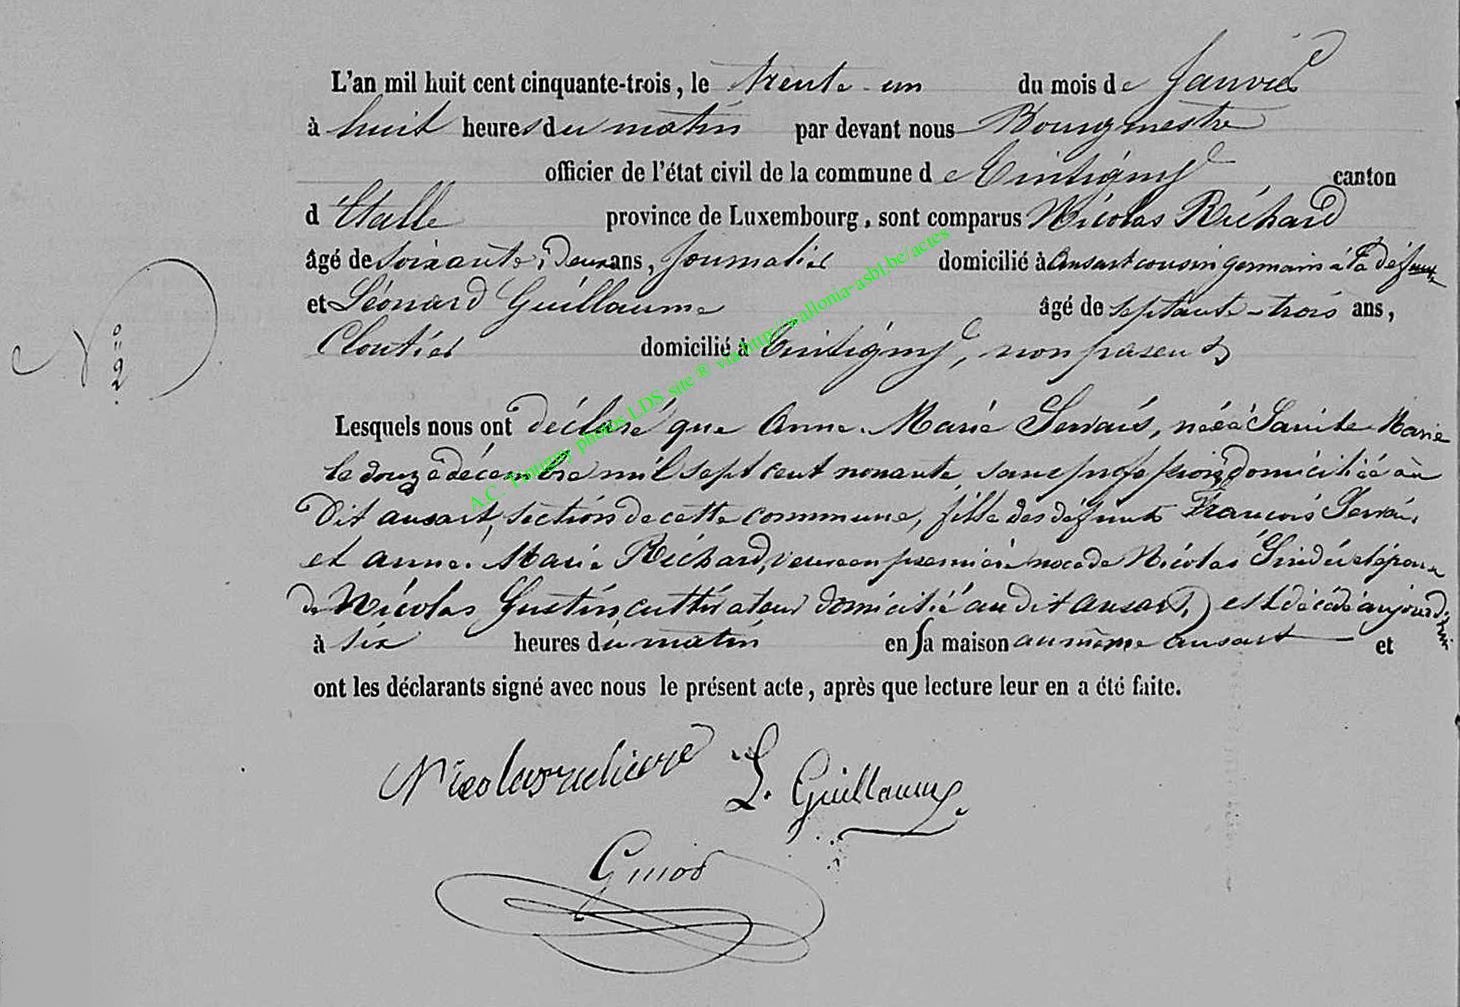 L'an mil huit cent cinquante-trois, le trente-un du mois de Janvier
à huit heures du matin par devant nous Bourgmestre
officier de l'état civil de la commune de Tintigny canton
d'Etalle province de Luxembourg, sont comparus Nicolas Richard
âgé de soixante-deux ans, Journalier domicilié à ansart cousin germain à la défunte
et Léonard Guillaume âgé de septante-trois ans,
Cloutier domicilié à Tintigny, non parent
N° 2
Lesquels nous ont déclaré que Anne-Marie Servais, née à Sainte Marie
le douze décembre mil sept cent nonante, sans profession, domiciliée au
Dit ansart, section de cette commune, fille des défunts François Servais
et anne-Marie Richard, veuve en premiere noce de Nicolas et épouse
de Nicolas Gustin, cultivateur domicilié au dit ansart, est décédé aujourd'hui
à six heures du matin en sa maison au même ansart et
ont les déclarants signé avec nous le présent acte, après que lecture leur en a été faite.
Nicolas richard L. Guillaume
A.C. Tintigny photos LDS site ® via http://wallonia-asbl.be/actes